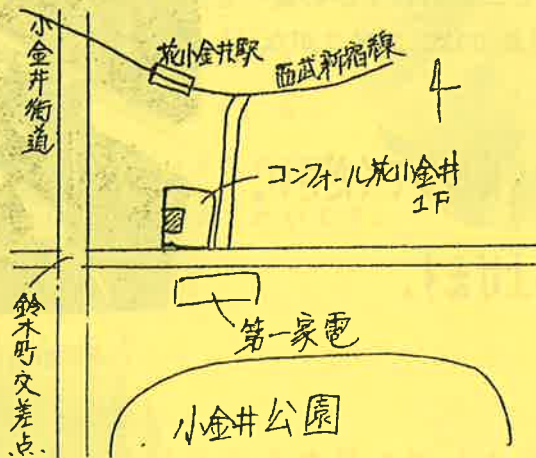 小金井街道
花小金井駅
西武新宿線
コンフォール花小金井
1F
第一家電
鈴木町交差点
小金井公園